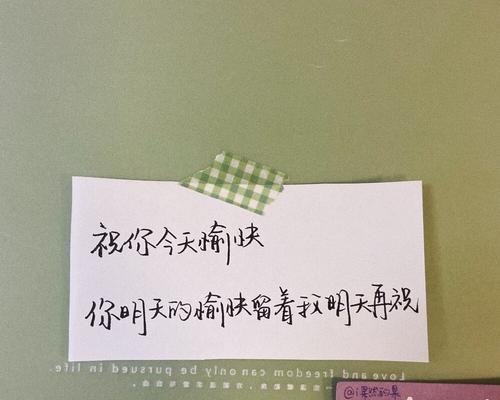 祝你今天愉快
你明天的愉快留着我明天再祝
Love and freedom can only be pursued in life.